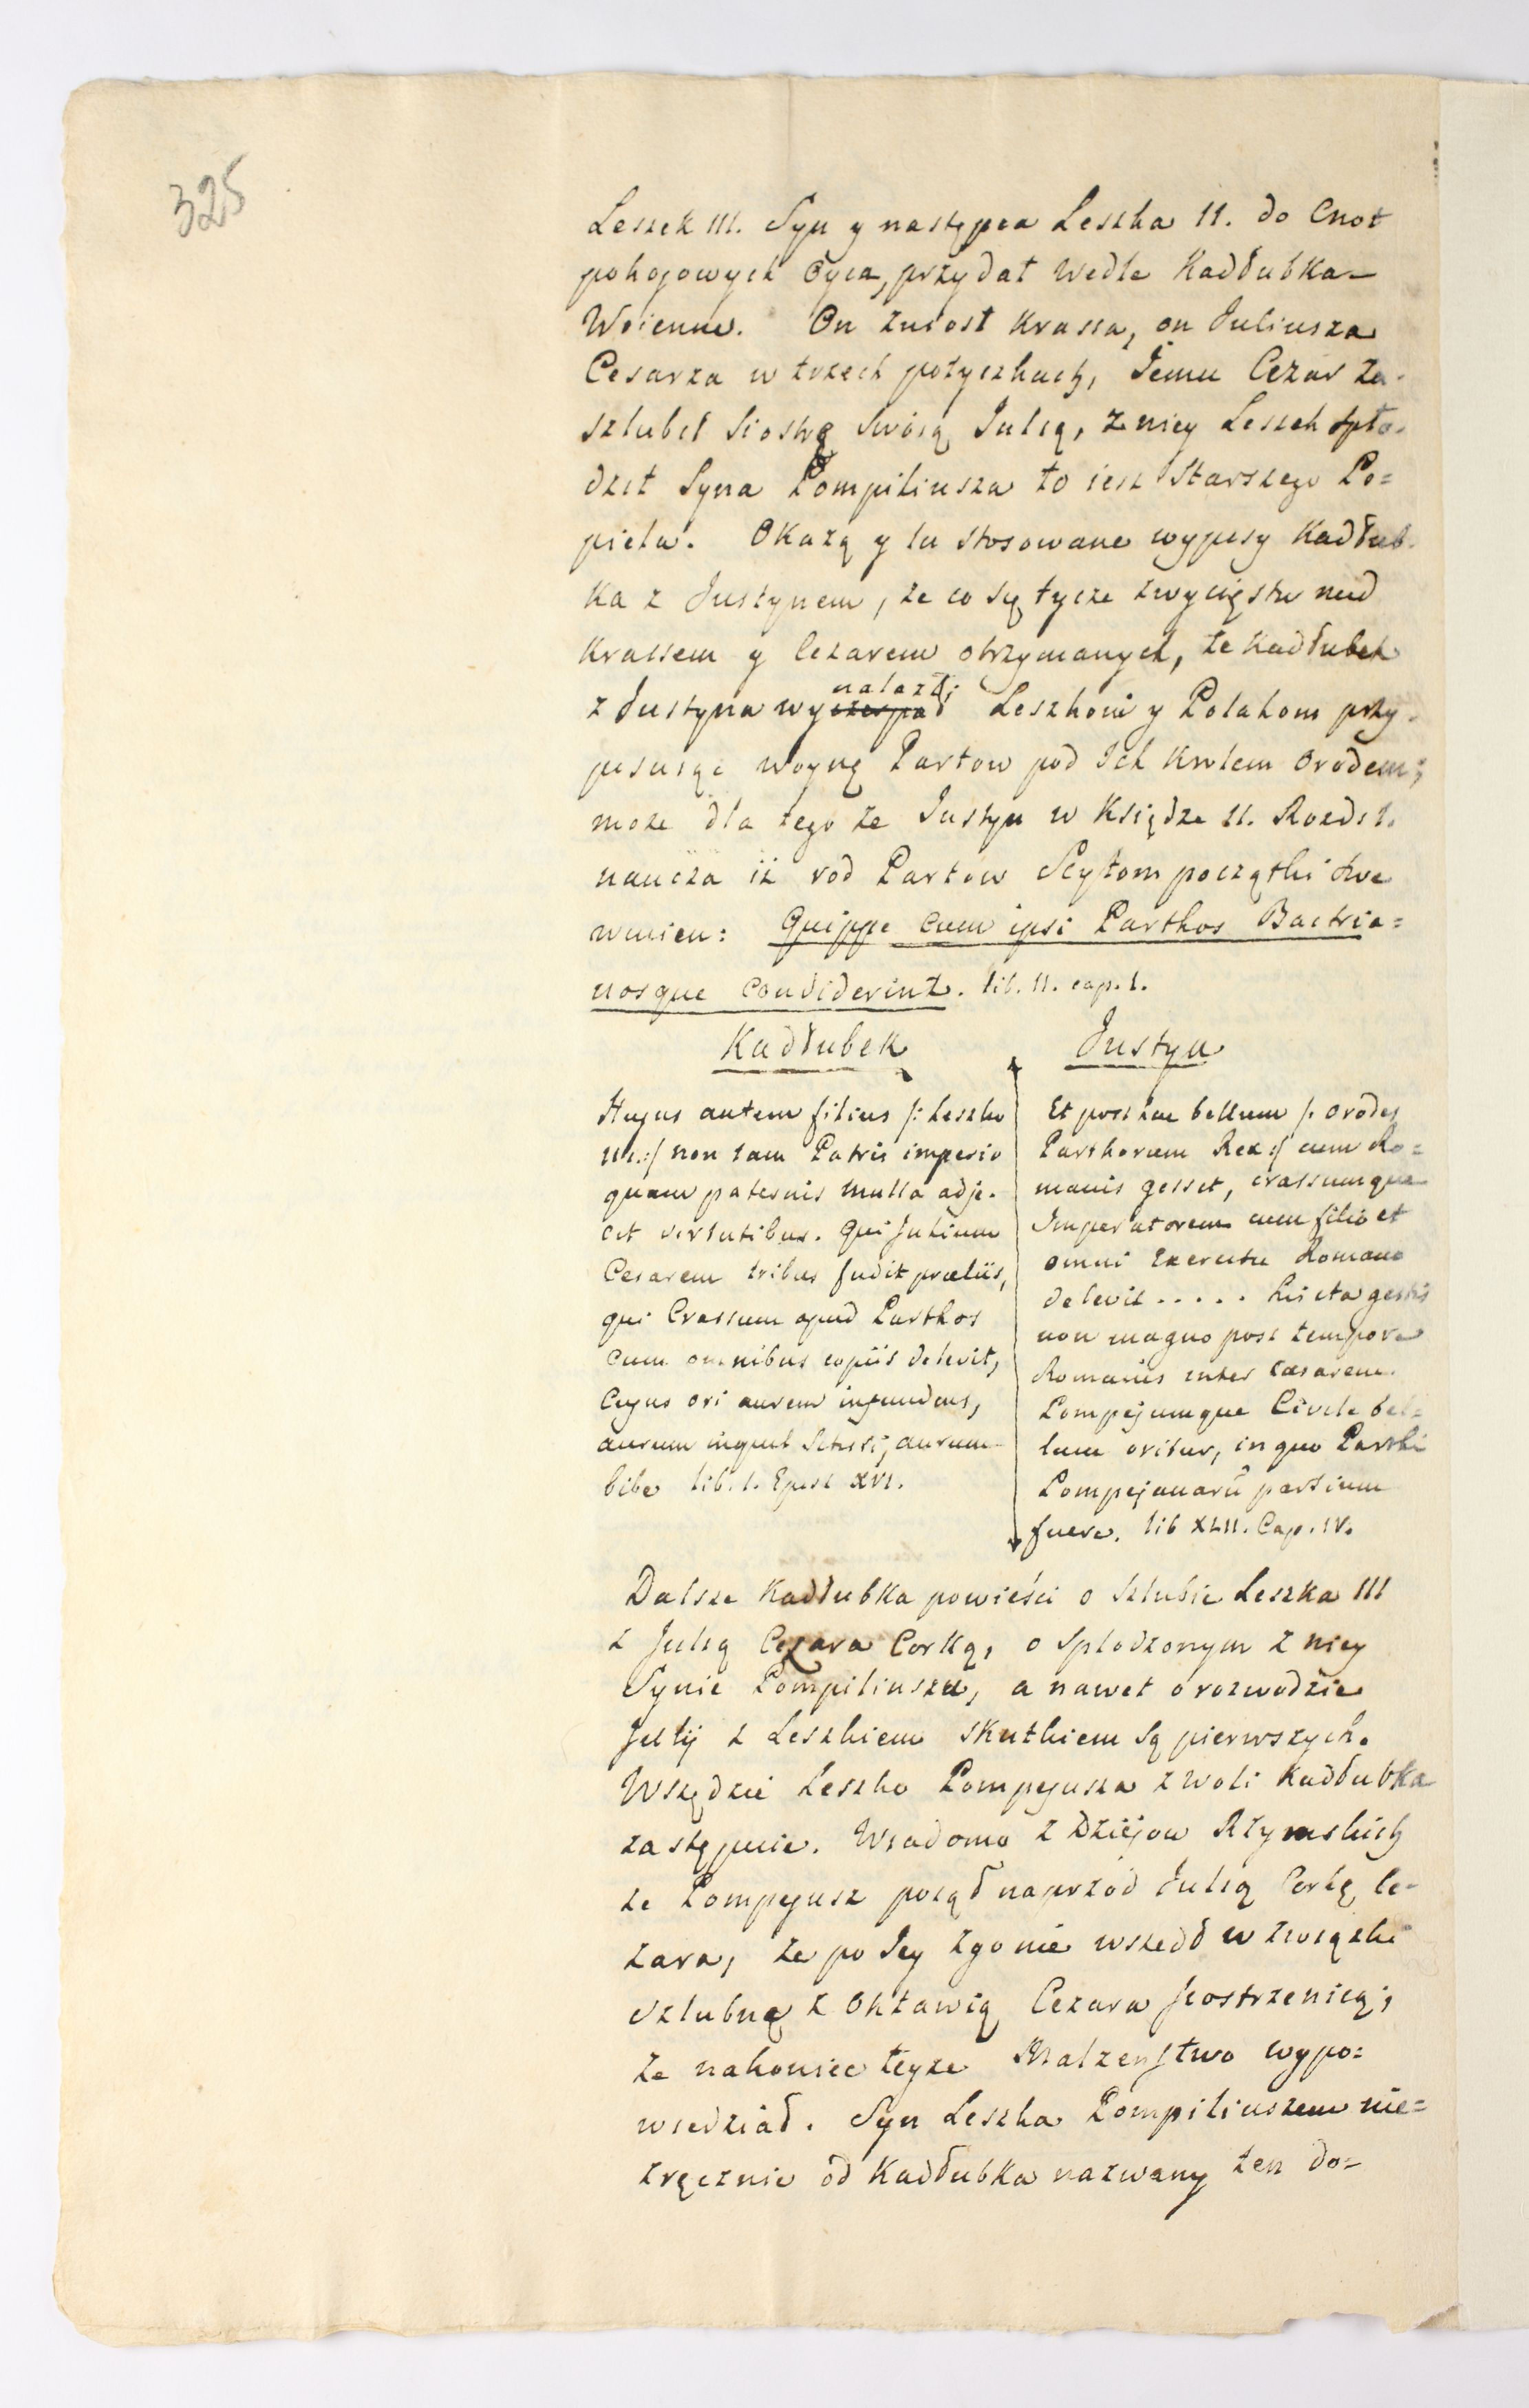 325
Leszek III. Syn y następca Leszka II. do Cnot
pokojowych Oyca, przydał wedle Kadłubka
Woienne. On zniosł Krassa, on Juliusza
Cesarza w trzech potyczkach, Jemu Cezar za-
szlubił Siostrę Swoią Julią, z niey Leszek spło-
dził Syna Pompiliusza to iest Starszego Po=
piela. Okażą y tu stosowane wypisy Kadłub-
ka z Justynem, że co się tycze zwycięstw nad
Krassem y Cezarem otrzymanych, te Kadłubek
nalazł;
z Justyna wyczerpał Leszkowi y Polakom przy-
pisuiąc woynę Partow pod Ich Krolem Orodem;
może dla tego że Justyn w Księdze II. Rozdz 1.
naucza iż rod Partow Scytom początki swe
winien: Quippe cum ipsi Parthos Bactria=
nosque condiderint. lib. II. cap. 1.
Kadłubek
Hujus autem filius /: Leszko
III.:/ non tam Patris imperio
quam paternis multa adje-
cit virtutibus. Qui Julium
Cesarem tribus fudit præliis,
qui Crassum apud Parthos
cum omnibus copiis delevit,
Cujus ori aurum infundens,
aurum inquit Sitisti, aurum
bibe lib. 1. Epist XVI.
Justyn
Et post hac bellum /: Orodes
Parthorum Rex :/ cum Ro=
manis gessit, crassumque
Imperatorem cum filio et
omni Exercitu Romano
delevit ..... his ita gestis
non magno post tempore
Romanis inter Cæsarem
Pompejumque Civile bel=
lum oritur, in quo Parthi
Pompejanarū partium
fuere. lib XLII. Cap. IV.
Dalsze Kadłubka powieści o Szlubie Leszka III
z Julią Cezara Corką, o Spłodzonym z niey
Synie Pompiliuszu, a nawet o rozwodzie
Julij z Leszkiem skutkiem są pierwszych.
Wszędzie Leszko Pompejusza z woli Kadłubka
zastępuie. Wiadomo z Dziejow Rzymskich
że Pompejusz poiął naprzód Julią Corkę Ce-
zara, że po Jey zgonie wszedł w związki
szlubną z Oktawią Cezara siostrzenicą;
że nakoniec teyże Małzenstwo wypo=
wiedział. Syn Leszka Pompiliuszem nie=
zręcznie od Kadłubka nazwany ten do=